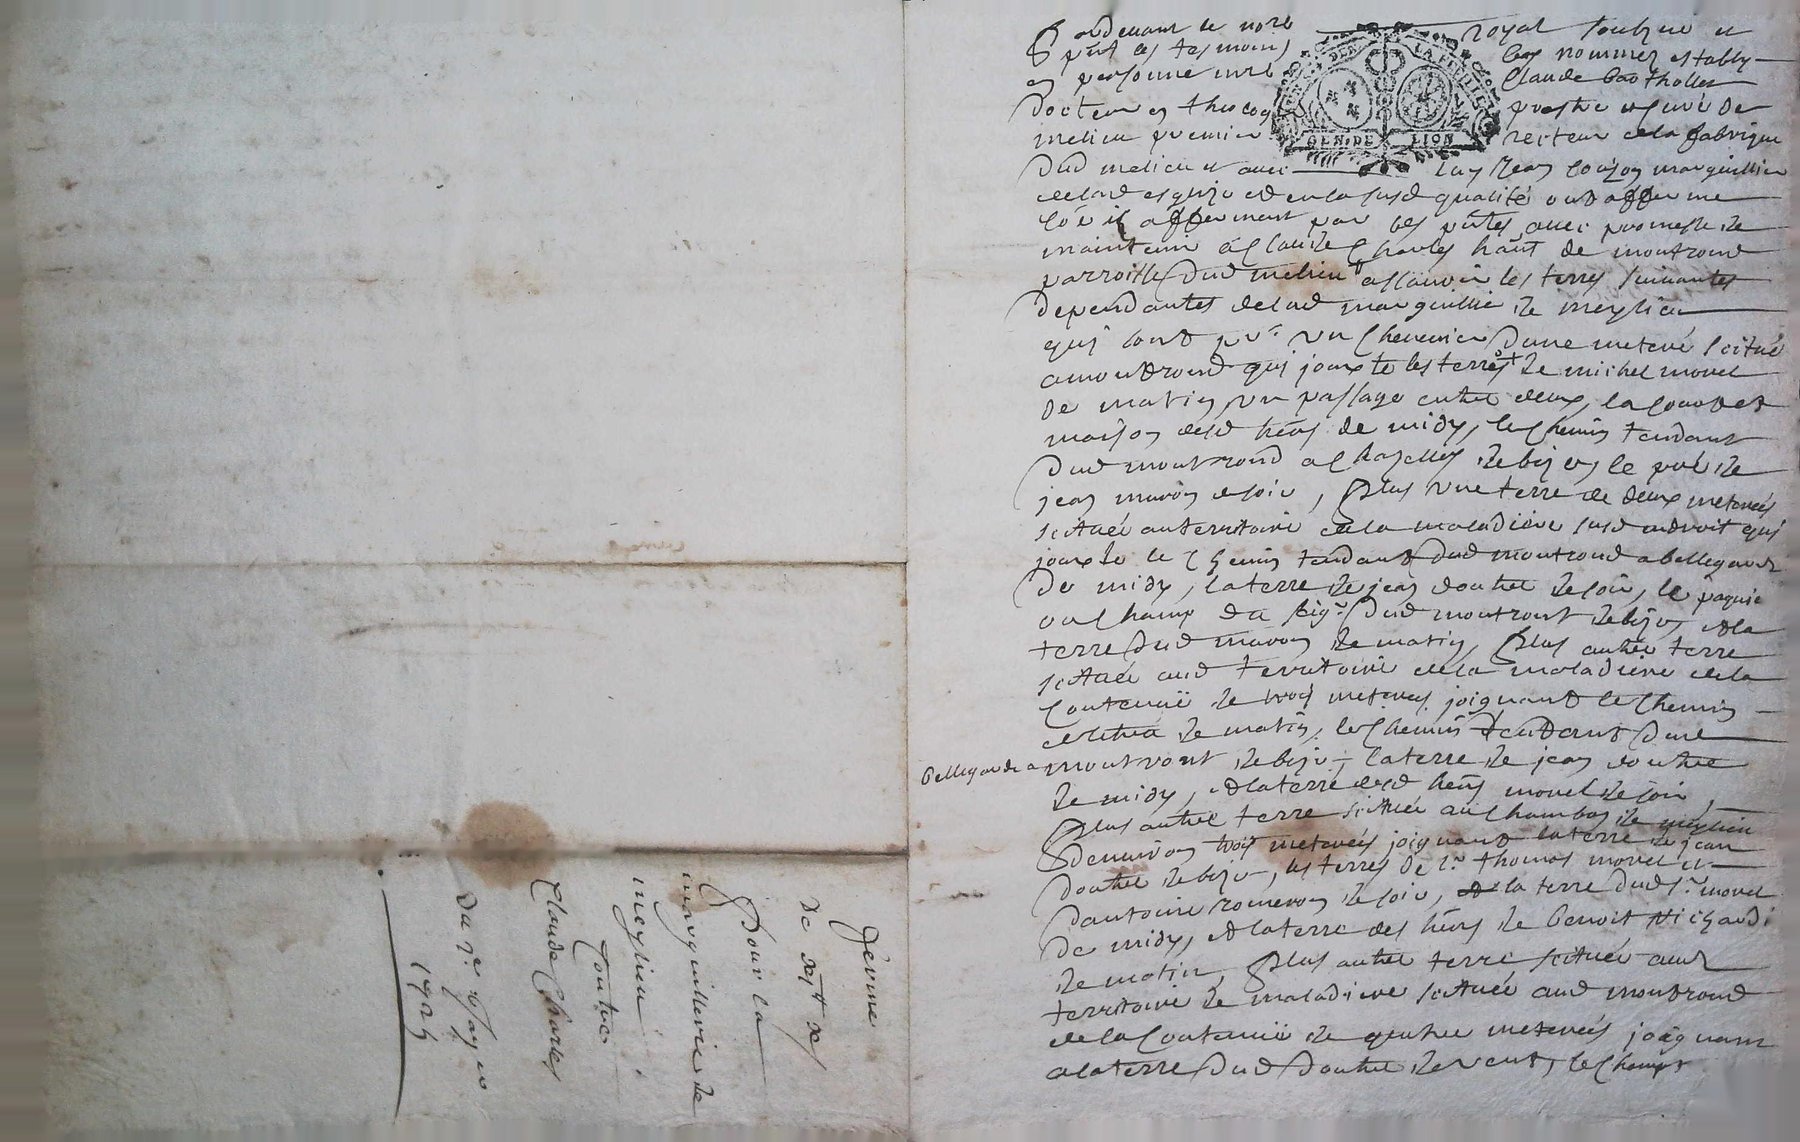 Pardevant le no.re royal soubzné et
pñt les tesmoins bas nommez estably
en personne mre Claude Bartholley
docteur en theolog prestre et curé de
melieu premier recteur de la fabrique
GEN. DE LION
dud melieu et avec luy Jean marguillier
de lad esglize et en lasusd qualité ont afferme
coe il afferment par ces pñtes avec promesse de
maintenir a Claude Charles hañt de montrond
parroisse dud melieu ascavoir les terres suivantes
dependantes de lad marguillié de meylieu
qui sont pr. un chenevier dune meteré scitué
a montrond qui jouxte les terres de michel morel
de matin, un passage entre deux, la cour et
maison desd hers de midy, le chemin tendant
dud montrond a Chazelles de bize, le pré de
jean de soir, Plus une terre de deux meterées
scituée au territoire de la maladière susd endroit qui
jouxte le chemin tendant dud montrond a bellegarde
de midy, la terre de jean doutre de soir, le paquis
ou champ du seigr. dud montront de bize, et la
terre dud de matin, Plus autre terre
scituée aud territoire de la maladiere de la
contenüe de trois meterees joignant le chemin
de matin, le chemin tendant dud
bellegarde a montront de bize, la terre de jean doutre
de midy, et la terre desd hers morel de soir,
Plus autre terre scituée au Chambon de meylieu
denviron trois meterées joignant la terre de jean
doutre de bize, les terres de sr. thomas morel et
dantoine de soir, et la terre dud sr. morel
de midy, et la terre des hers de Benoit Richard
de matin, Plus autre terre scituée aud
territoire de maladiere scituée aud montrond
de la contenüe de quatre meterées joignant
a la terre dud doutre de vent, le champt
ferme
Pour la
marguillerie de
meylieu
Contre
Claude Charles